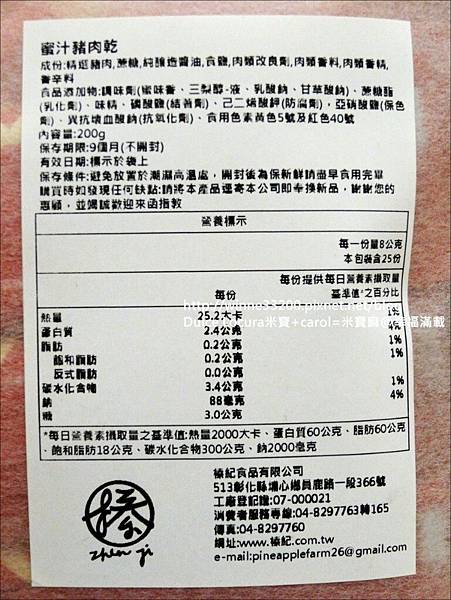 蜜汁豬肉乾
成份:精選豬肉,蔗糖,純釀造醬油,食鹽,肉類改良劑,肉類香料,肉類香精,
香辛料
食品添加物:調味劑(蜜味香、三梨醇-液、乳酸鈉、甘草酸鈉)、蔗糖酯
(乳化劑)、味精、磷酸鹽(結著劑)、己二烯酸鉀(防腐劑)，亞硝酸鹽(保色
劑)、異抗壞血酸鈉(抗氧化劑)、食用色素黃色5號及紅色40號
內容量:200g
保存期限:9個月(不開封)
有效日期:標示於袋上
保存條件:避免放置於潮濕高溫處，開封後為保新鮮請盡早食用完畢
購買時如發現任何缺點:請將本產品運寄本公司即奉換新品，謝謝您的
惠顧，並竭誠歡迎來函指教
營養標示
每一份量8公克
本包裝含25份
每份提供每日營養素攝取量
每份 基準值*之百分比
熱量 25.2大卡 1%
蛋白質 2.4公克 4%
脂肪 0.2公克 1%
飽和脂肪 0.2公克 1%
反式脂肪 0.0公克
碳水化合物 3.4公克 1%
鈉 88毫克 4%
糖 3.0公克
*每日營養素攝取量之基準值:熱量2000大卡、蛋白質60公克、脂肪60公克
、飽和脂肪18公克、碳水化合物300公克、鈉2000毫克
榛紀食品有限公司
513彰化縣埔心鄉員鹿路一段366號
工廠登記證:07-000021
消費者服務專線:04-8297763轉165
傳真:04-8297760
網址:www.榛紀.com.tw
e-mail:pineapplefarm26@gmail.com
榛
zhen ji